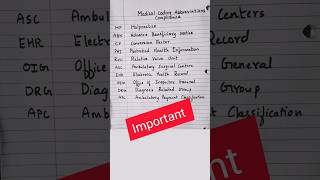 Medical Coding Abbreviations
Compliance
MP Malpractice
ABN Advance Beneficiary Notice
CF Conversion Factor
PHI Protected Health Information
RVU Relative Value Unit
ASC Ambulatory Surgical Centers
EHR Electronic Health Record
OIG Office of Inspector General
DRG Diagnosis Related Group
APC Ambulatory Payment Classification
Important
ASC Ambul
Centers
EHR Electro
Record
OIG Office
General
DRG Diagn
Group
APC Ambul
Classification